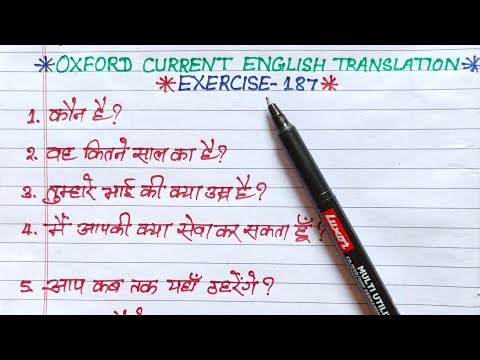 *OXFORD CURRENT ENGLISH TRANSLATION*
*EXERCISE-187*
1. कौन है?
2. वह कितने साल का है?
3. तुम्हारे भाई की क्या उम्र है?
4. मैं आपकी क्या सेवा कर सकता हूँ?
5. आप कब तक यहाँ ठहरेंगे?
Luxor
MULTI UTILI